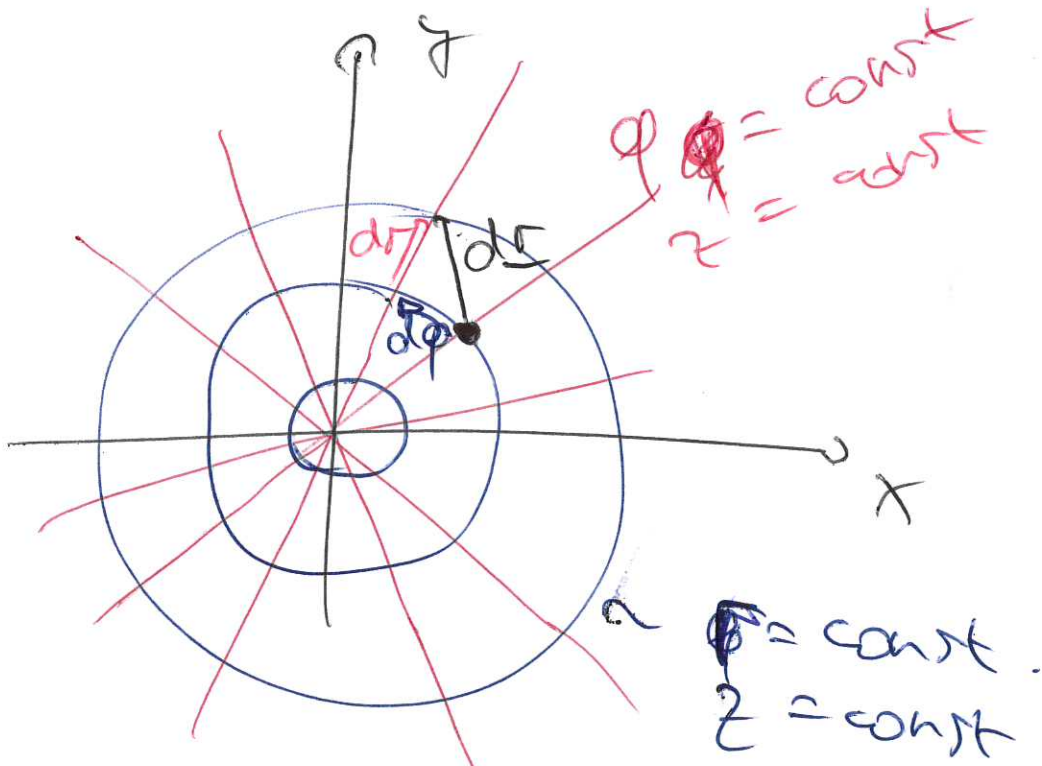 y
φ = const
z = const
dr
dr
dφ
x
r = const.
z = const